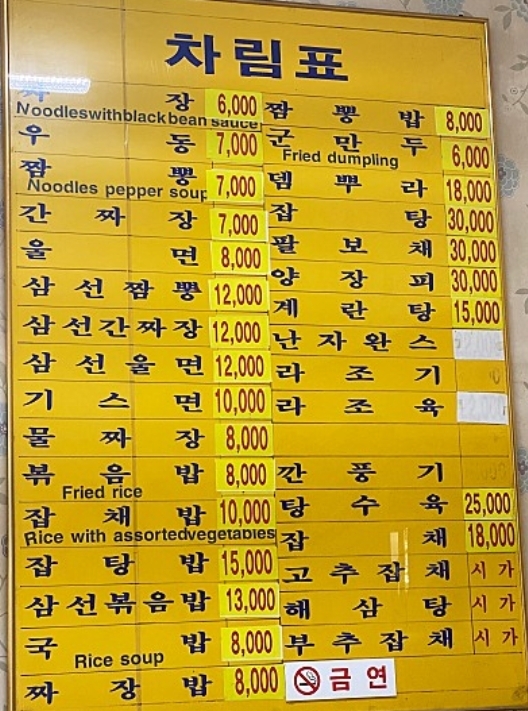 차림표
짜 장 6,000
Noodleswithblackbean sauce
우 동 7,000
짬 뽕 7,000
Noodles pepper soup
간 짜 장 7,000
울 면 8,000
삼 선 짬 뽕 12,000
삼 선 간 짜 장 12,000
삼 선 울 면 12,000
기 스 면 10,000
물 짜 장 8,000
볶 음 밥 8,000
Fried rice
잡 채 밥 10,000
Rice with assortedvegetables
잡 탕 밥 15,000
삼 선 볶 음 밥 13,000
국 밥 8,000
Rice soup
짜 장 밥 8,000
짬 뽕 밥 8,000
군 만 두 6,000
Fried dumpling
뎀 뿌 라 18,000
잡 탕 30,000
팔 보 채 30,000
양 장 피 30,000
계 란 탕 15,000
난 자 완 스
라 조 기
라 조 육
깐 풍 기
탕 수 육 25,000
잡 채 18,000
고 추 잡 채 시 가
해 삼 탕 시 가
부 추 잡 채 시 가
금 연